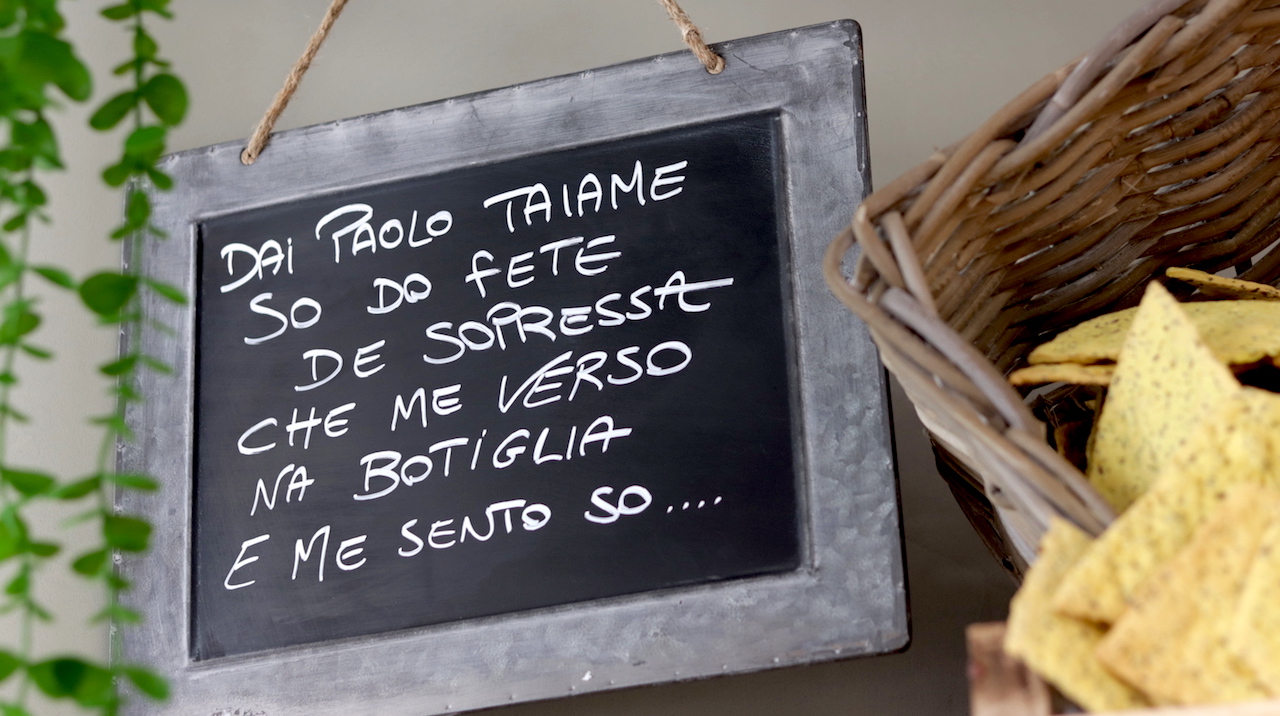 DAi PAOLO TAIAME
SO DO FETE
DE SOPRESSA
CHE ME VERSO
NA BOTIGLIA
E ME SENTO SO....